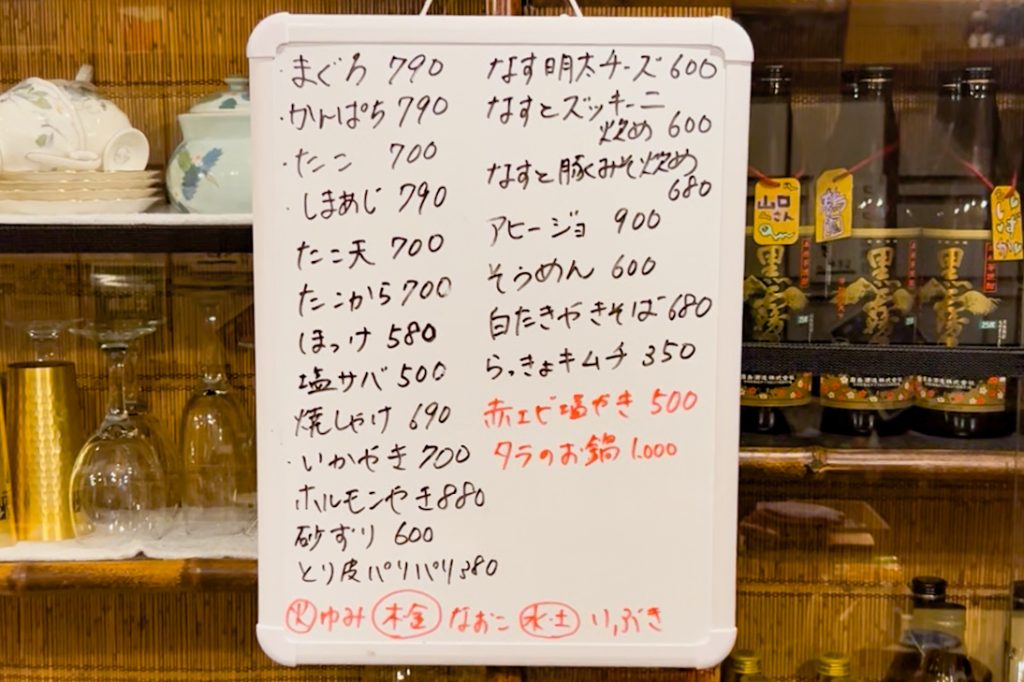 ・まぐろ 790
・かんぱち 790
・たこ 700
・しまあじ 790
たこ天 700
たこから 700
ほっけ 580
塩サバ 500
焼しゃけ 690
・いかやき 700
ホルモンやき 880
砂ずり 600
とり皮パリパリ 380
なす明太チーズ 600
なすとズッキーニ
炒め 600
なすと豚みそ炒め
680
アヒージョ 900
そうめん 600
白たきやきそば 680
らっきょキムチ 350
赤エビ塩やき 500
タラのお鍋 1.000
火 ゆみ 木金 なおこ 水・土 いぶき
山口
さん
しずか
黒霧
黒霧
黒霧
25度
霧島酒造株式会社
霧島酒造株式会社